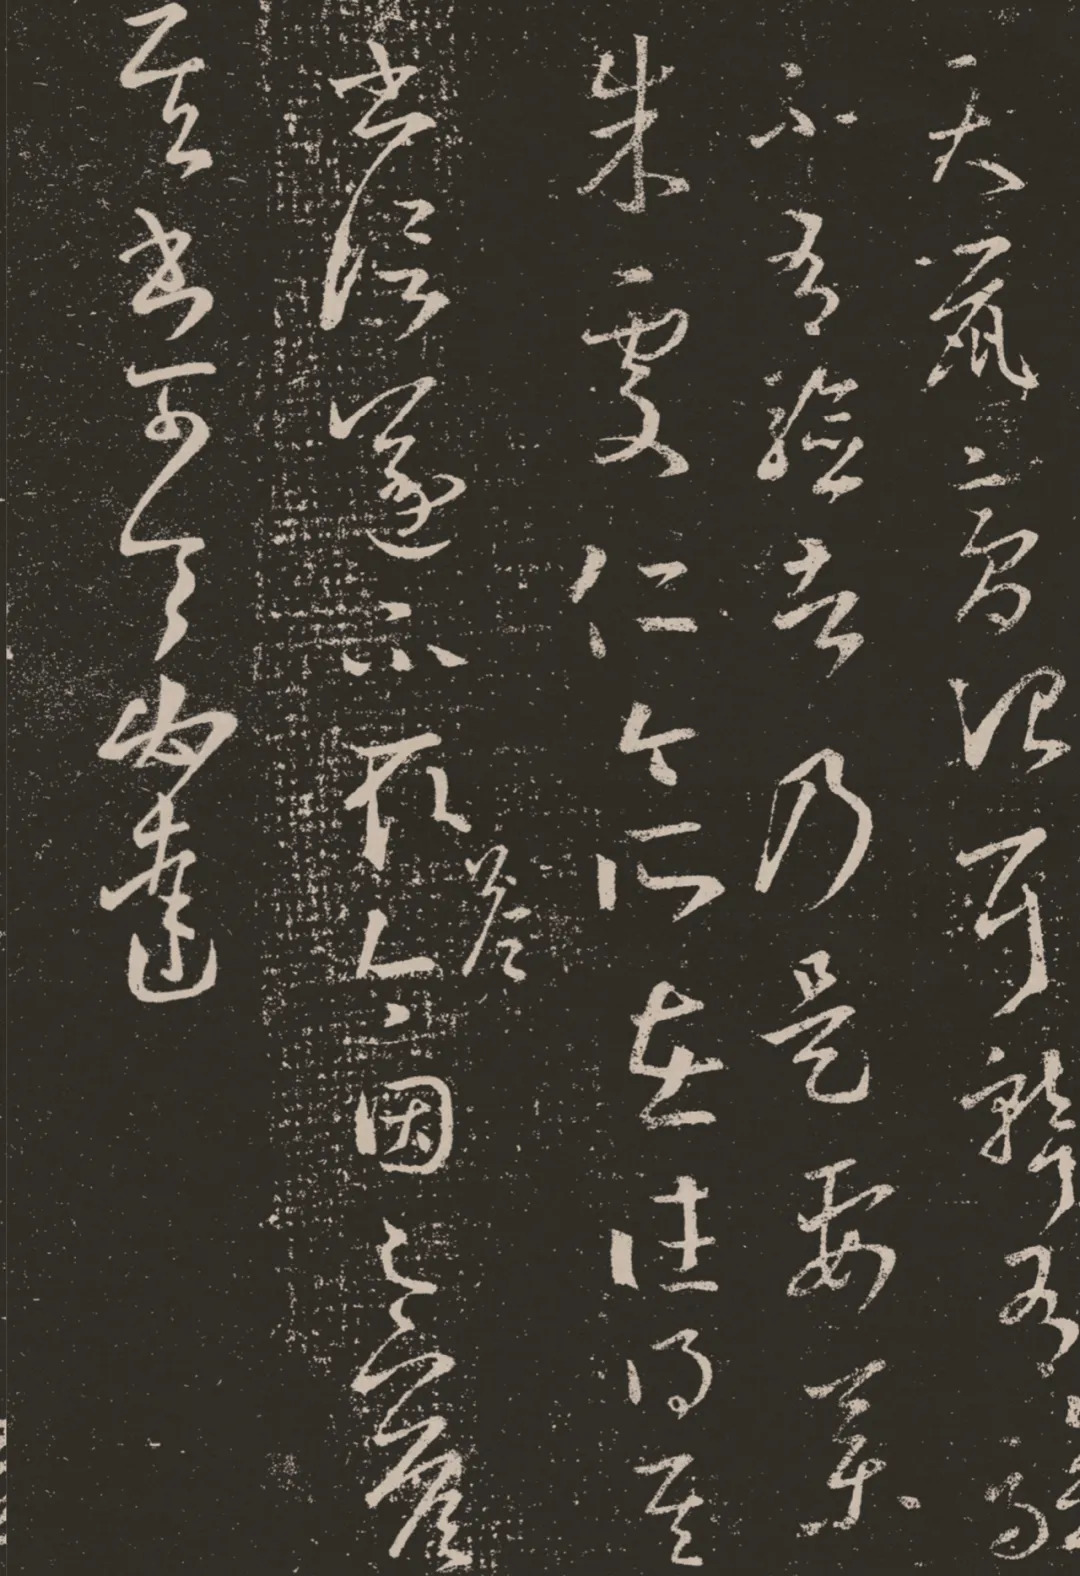 天鼠膏治耳聾有驗
不有驗者乃是要藥
朱處仁今所在往得其
書信遂不取答今因足下答
其書可令必達